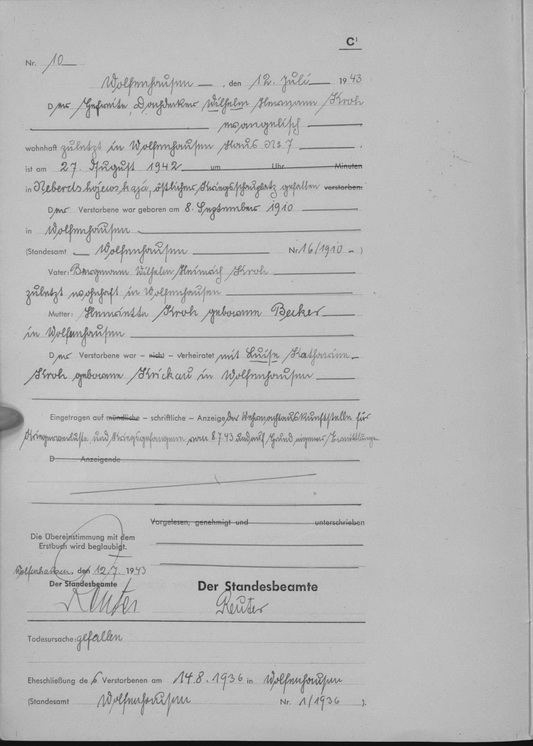 C¹
Nr. 10
Wolfenhausen, den 12. Juli 1943
Der Gefreite, Dachdecker Wilhelm Hermann Kroh
evangelisch
wohnhaft zuletzt in Wolfenhausen Haus Nr 7
ist am 27. August 1942 um Uhr Minuten
in östlicher Kriegsschauplatz gefallen verstorben.
Der Verstorbene war geboren am 8. September 1910
in Wolfenhausen
(Standesamt Wolfenhausen Nr. 16/1910 )
Vater: Bergmann Wilhelm Heinrich Kroh
zuletzt wohnhaft in Wolfenhausen
Mutter: Henriette Kroh geborene Becker
in Wolfenhausen
Der Verstorbene war – nicht – verheiratet mit Luise Katharine
Kroh geborene in Wolfenhausen
Eingetragen auf mündliche – schriftliche – Anzeige der Wehrmachtauskunftstelle für
Kriegerverluste und Kriegsgefangene vom 8.7.43 auf Grund eigener Ermittlungen
D Anzeigende
Vorgelesen, genehmigt und unterschrieben
Die Übereinstimmung mit dem
Erstbuch wird beglaubigt.
Wolfenhausen den 12.7. 1943
Der Standesbeamte
Reuter
Der Standesbeamte
Reuter
Todesursache: gefallen
Eheschließung des Verstorbenen am 14.8.1936 in Wolfenhausen
(Standesamt Wolfenhausen Nr. 1/1936 ).